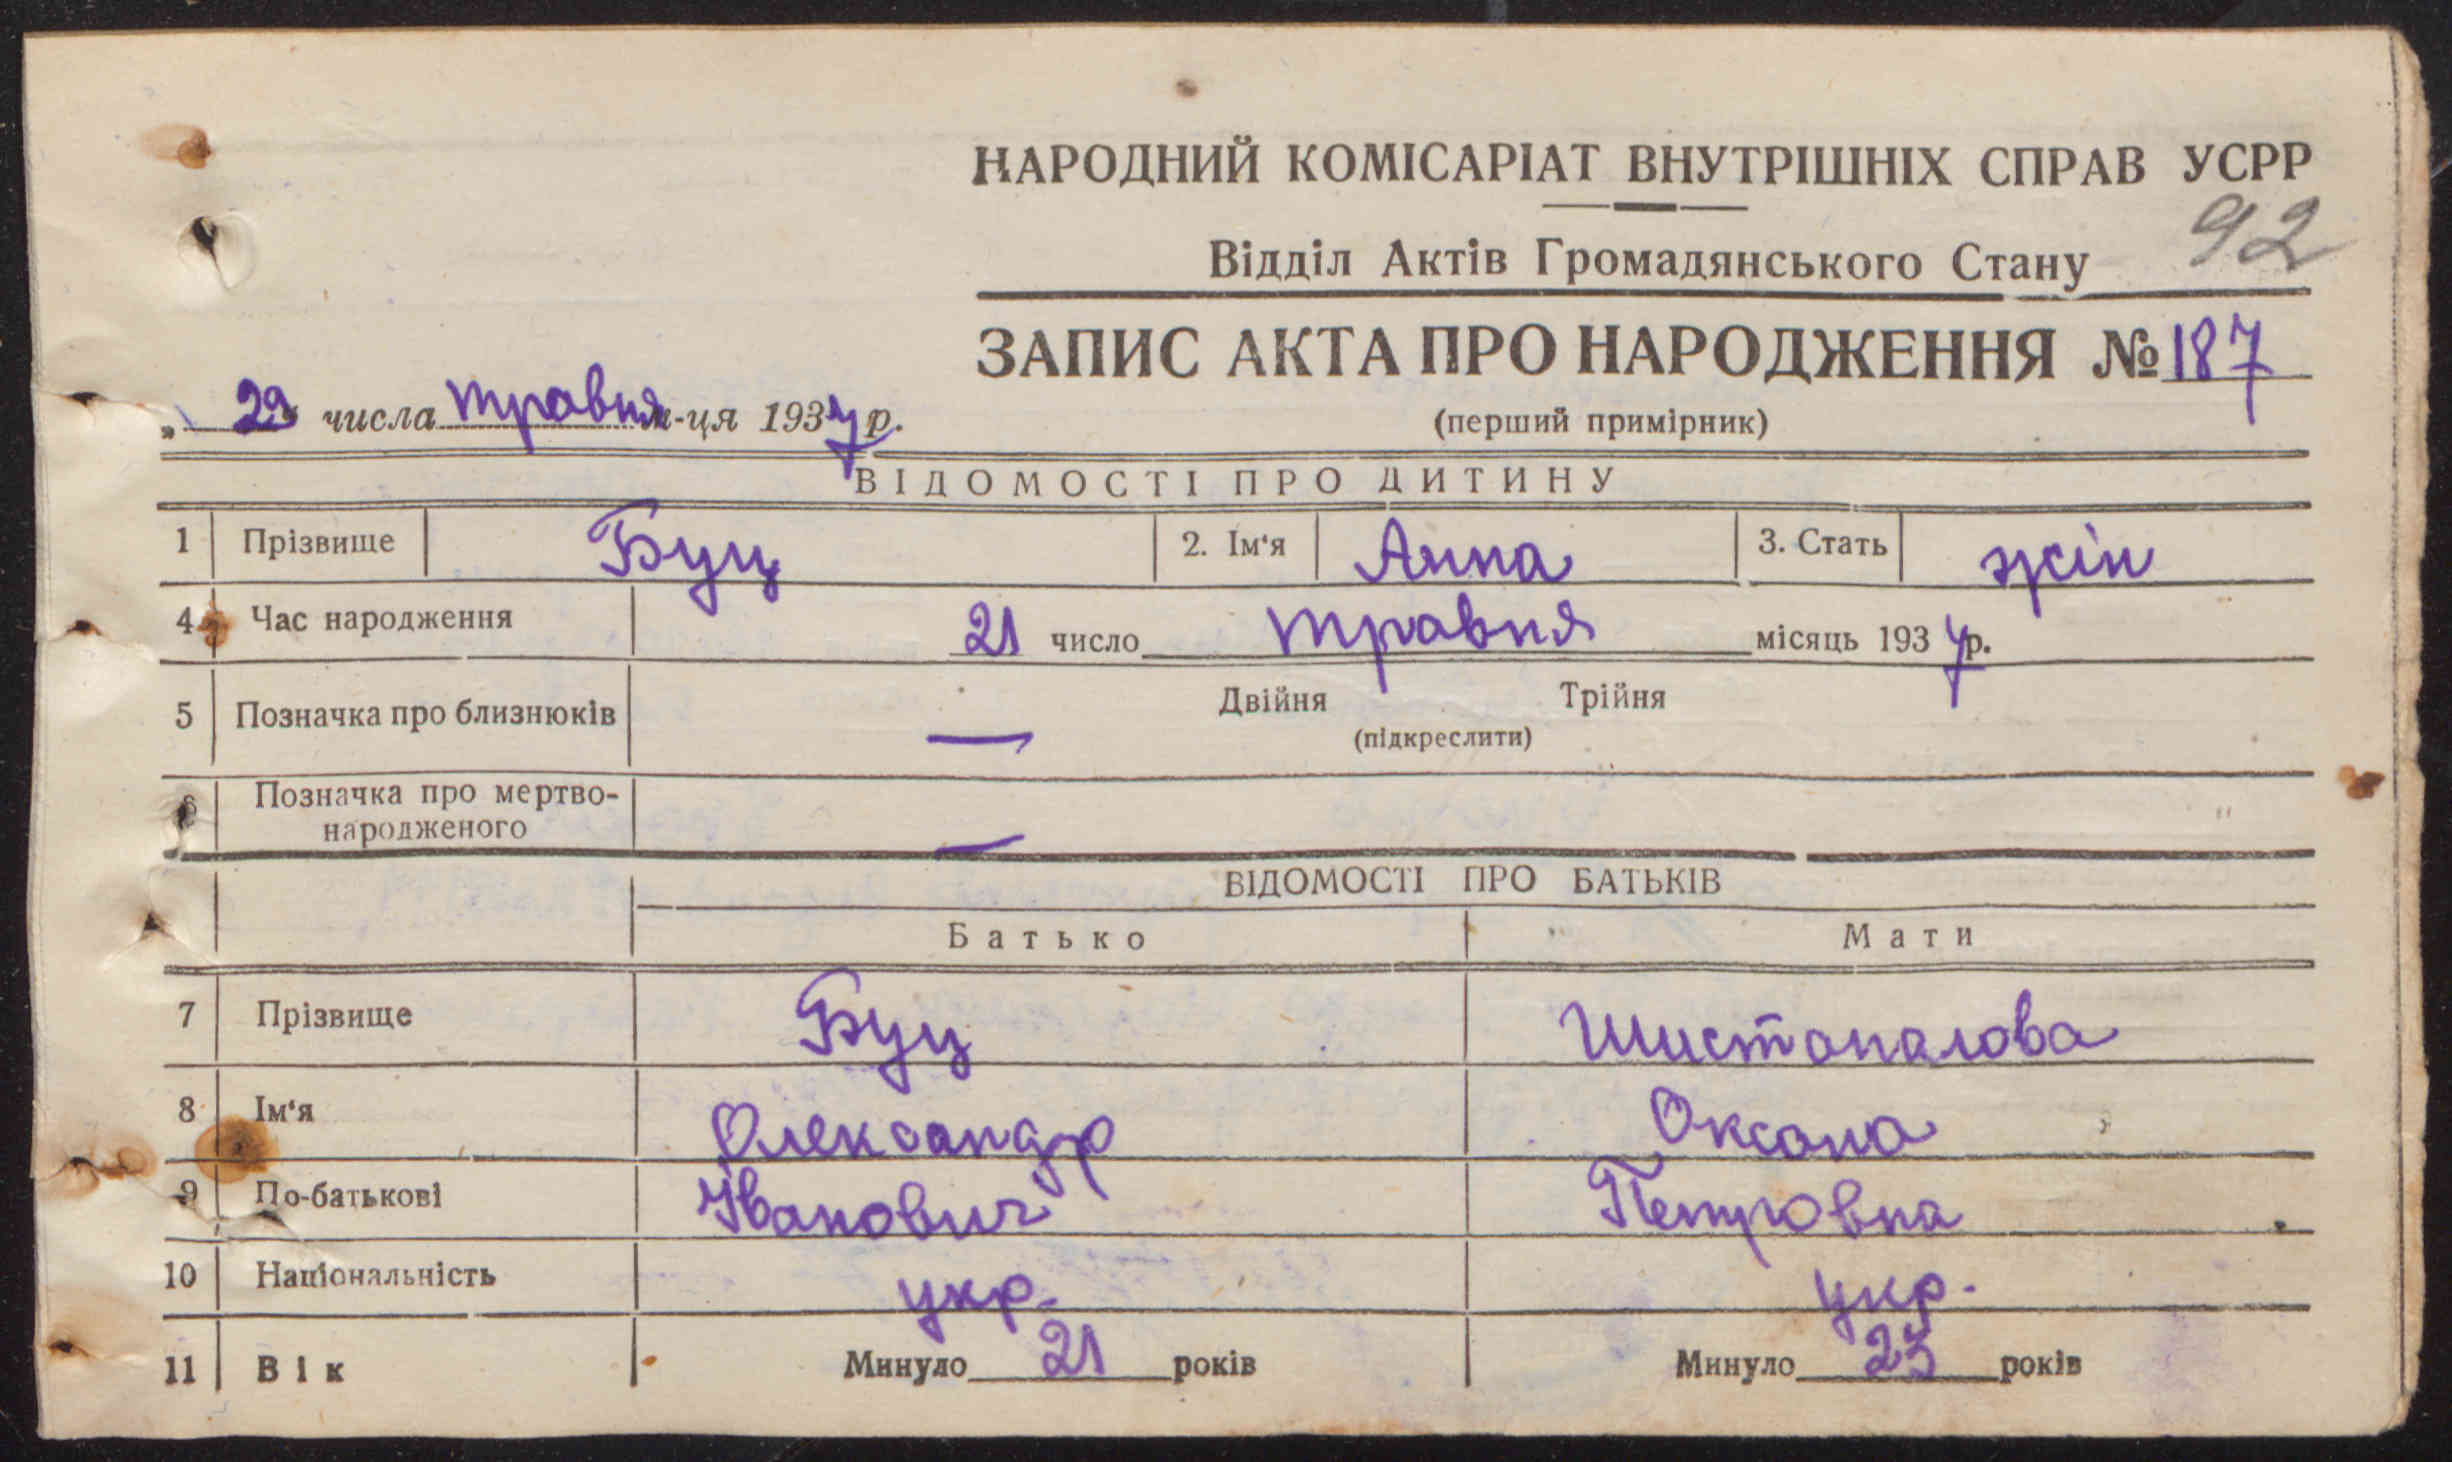 НАРОДНИЙ КОМІСАРІАТ ВНУТРІШНІХ СПРАВ УСРР
92
Відділ Актів Громадянського Стану
ЗАПИС АКТА ПРО НАРОДЖЕННЯ № 187
„ 29 “ числа травня м-ця 1937 р.
(перший примірник)
ВІДОМОСТІ ПРО ДИТИНУ
1 Прізвище Буц 2. Ім‘я Анна 3. Стать жін
4 Час народження 21 число травня місяць 1937 р.
5 Позначка про близнюків — Двійня Трійня
(підкреслити)
6 Позначка про мертво-
народженого —
ВІДОМОСТІ ПРО БАТЬКІВ
Батько Мати
7 Прізвище Буц Шистопалова
8 Ім‘я Олександр Оксана
9 По-батькові Іванович Петровна
10 Національність укр. укр.
11 Вік Минуло 21 років Минуло 23 років